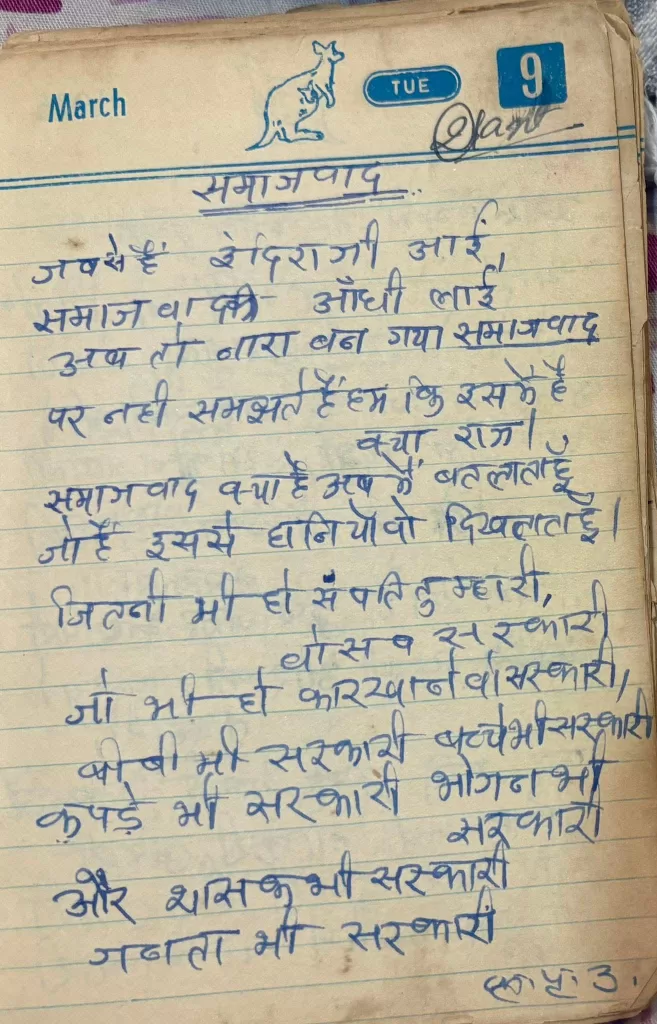 March
TUE
9
समाजवाद
जबसे हैं इंदिराजी आईं,
समाजवादकी आँधी लाई
अब तो नारा बन गया समाजवाद
पर नही समझते हैं हम कि इसमें है
क्या राज।
समाजवाद क्या है अब मैं बतलाताहूँ
जो हैं इससे हानियाँ वो दिखलाताहूँ।
जितनी भी हो संपति तुम्हारी,
वो सब सरकारी
जो भी हो कारखाने वो सरकारी,
बीबी भी सरकारी बच्चेभी सरकारी
कपड़े भी सरकारी भोजन भी
सरकारी
और शासक भी सरकारी
जनता भी सरकारी
3.